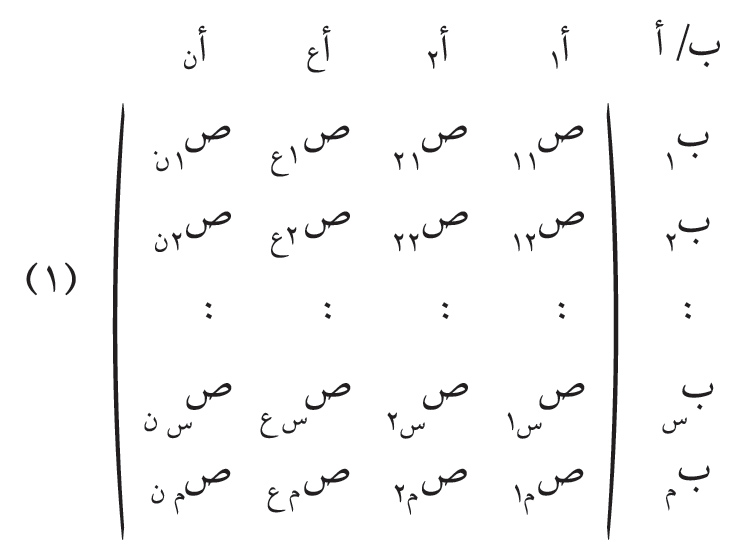 ب/ أ أ١ أ٢ أع أن
ب١ ص١١ ص٢١ ص١ع ص١ن
ب٢ ص١٢ ص٢٢ ص٢ع ص٢ن
: : : : :
(١)
بس صس١ صس٢ صس ع صس ن
بم صم١ صم٢ صم ع صم ن